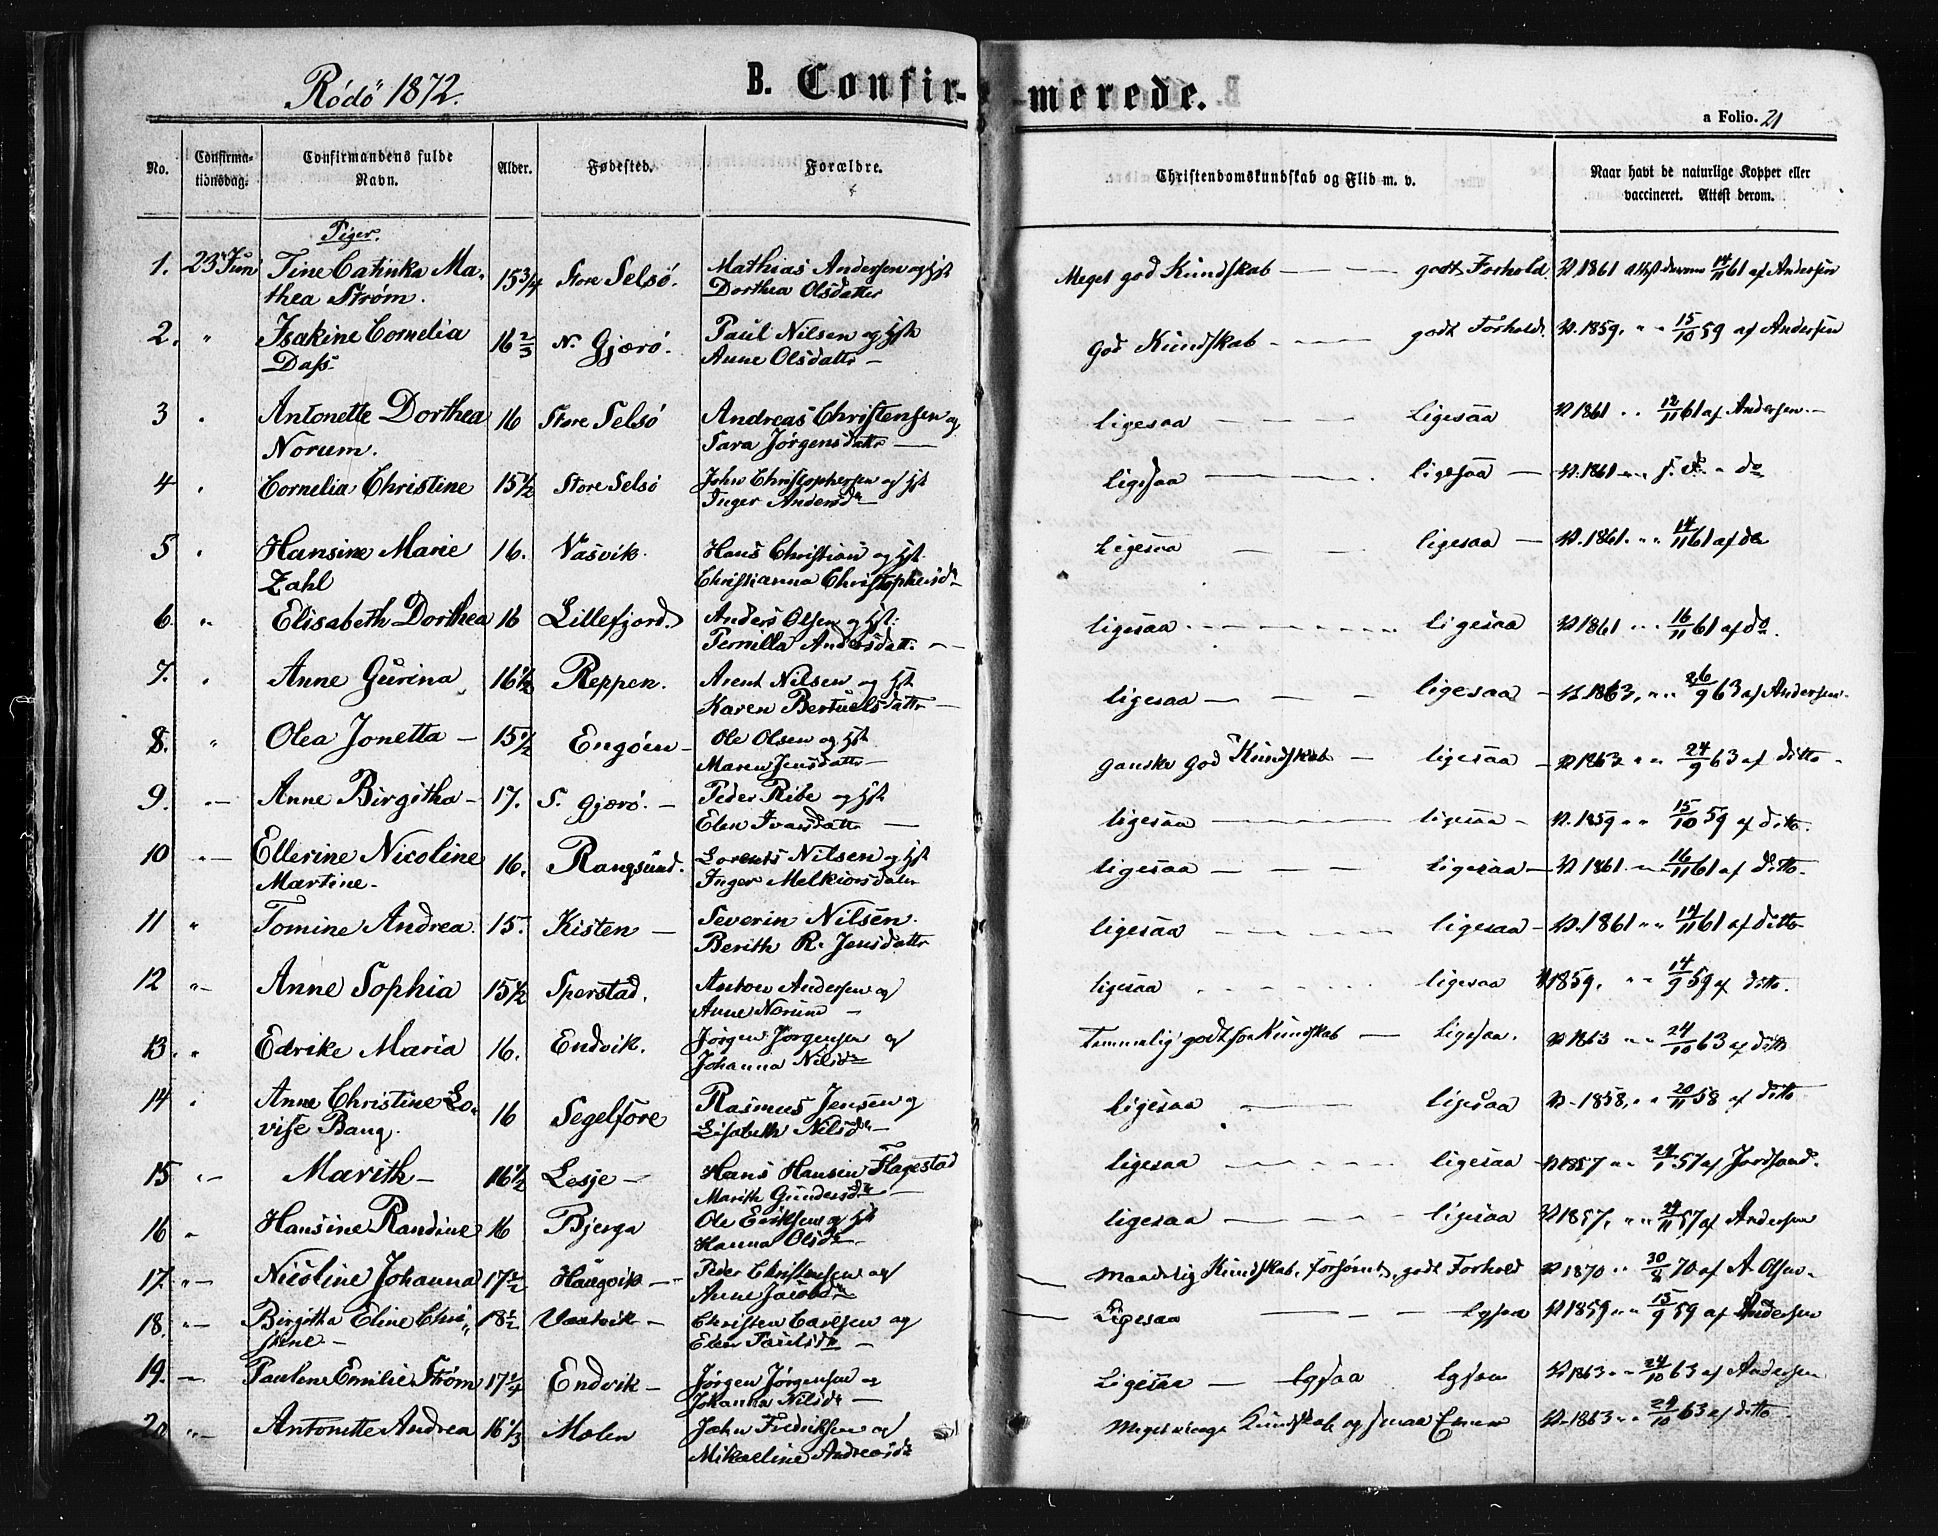 Rödö 1872.
B. Confir-merede.
a Folio. 21
No.
Confirma-
tionsdag.
Confirmandens fulde
Navn.
Alder.
Fødested.
Forældre.
Christendomskundskab og Flid m. v.
Naar havt de naturlige Kopper eller
vaccineret. Attest derom.
Piger.
1. 23 Juni Tine Catinka Ma- 15 3/4 Store Selsö. Mathias Andersen og Hst Meget god Kundskab — — — godt Forhold. V. 1861 Attest derom 14/11 61 af Andersen
thea Strøm. Dorthea Olsdatter
2. " Isakine Cornelia 16 2/3 N. Gjærö. Paul Nilsen og Hst God Kundskab — — — godt Forhold. V. 1859. " " 15/10 59 af Andersen
Dass. Anne Olsdattr —
3 " Antonette Dorthea 16 Store Selsö Andreas Christensen og ligesaa — — — Ligesaa V. 1861 " " 12/11 61 af Andersen. —
Norum. Sara Jørgensdattr —
4 " Cornelia Christine 15 1/2 Store Selsö John Christophersen og Hst ligesaa — — — ligesaa — V. 1861 " " do
Inger Andersdr
5 " Hansine Marie 16. Vasvik. Hans Christian og Hst. Ligesaa — — — ligesaa — V. 1861. " " 14/11 61 af do
Zahl Christianna Christophersdr
6. " Elisabeth Dorthea 16 Lillefjord. Anders Olsen og Hst. ligesaa — — — ligesaa V. 1861 " " 16/11 61 af do.
Pernilla Andersdatt. —
7. " Anne Gurina 16 1/2 Reppen. Arent Nilsen og Hst ligesaa — — — ligesaa — V. 1863, " " 26/9 63 af Andersen.
Karen Bertuelsdattr —
8. " Olea Jonetta — 15 1/2 Engöen — Ole Olsen og Hst ganske god Kundskab — ligesaa — V. 1863 " " 24/9 63 af ditto.
Maren Jensdattr —
9. " — Anne Birgitha — 17. S. Gjærö. — Peder Ribe og Hst ligesaa — — — ligesaa — V. 1859 " " 15/10 59 af ditto.
Elen Ivarsdattr —
10 " — Ellerine Nicoline 16. Rangsund. Lorents Nilsen og Hst ligesaa — — — ligesaa — V. 1861 " " 16/11 61 af ditto.
Martine. Inger Melkiorsdatter
11 " Tomine Andrea. 15. Kisten — Severin Nilsen. ligesaa — — — ligesaa — V. 1861 " " 14/11 61 af ditto
Berith R. Jensdattr
12 " Anne Sophia 15 1/2 Sperstad. Anton Andersen og ligesaa — — — ligesaa V. 1859. " " 14/9 59 af ditto.
Anne Norum —
13. " Edrike Maria 16. Endvik. Jørgen Jørgensen og Temmelig godt saa Kundskab — ligesaa. V. 1863 " " 24/10 63 af ditto
Johanna Nilsdr
14 " Anne Christine Lo- 16 Segelfore Rasmus Jensen og ligesaa — — — ligesaa V. 1858. " " 20/11 58 af ditto
vise Bang. Lisabeth Nilsdr —
15 " — Marith — 16 1/2 Lesje — Hans Hansen Flagestad ligesaa — — — ligesaa — V. 1857 " " 24/1 57 af
Marith Gundersdr —
16 " Hansine Randine 16 Bjerga Ole Eriksen og Hst ligesaa — — — ligesaa V. 1857. " " 24/11 57 af Andersen
Hanna Olsdr.
17. " — Nicoline Johanna 17 1/2 Haugvik — Peder Christensen og Maadelig Kundskab, forsömt, godt Forhold V. 1870 " " 30/8 70 af A. Olsen.
Anne Jacobsdr
18. " — Birgitha Eline Chri- 18 1/2 Vaatvik — Christen Carlsen og Ligesaa — — — Lgsaa V. 1859 " " 15/9 59 af Andersen
stine — Elen Paulsdr —
19. — Pauline Emilie Strøm 17 1/4 Endvik — Jørgen Jørgensen og Ligesaa — lgsaa lgsaa V. 1863 " " 24/10 63 af Andersen
Johanna Nilsdr —
20 " — Antonette Andrea 16 1/3 Molen John Fredriksen og Meget svage Kundskab og smaa Evner V. 1863 " " 24/10 63 af ditto.
Mikaeline Andreasdr